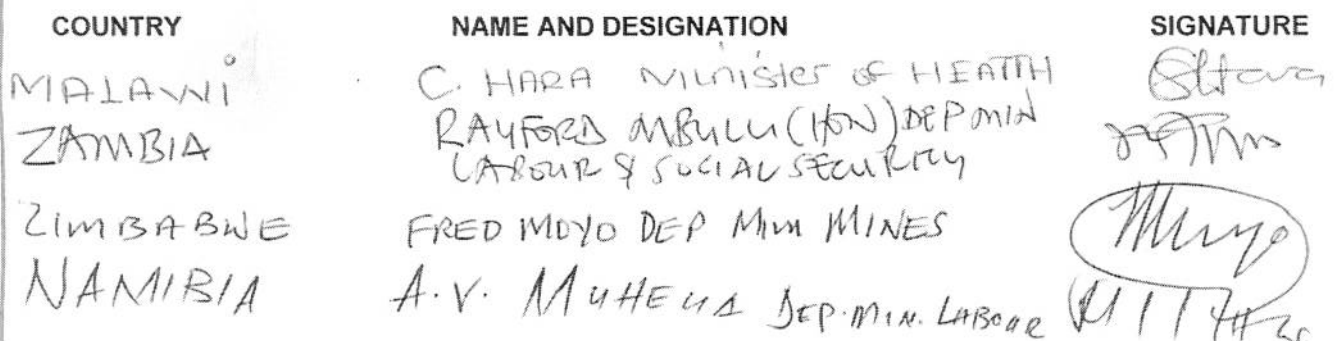 COUNTRY NAME AND DESIGNATION SIGNATURE
MALAWI C. HARA MINISTER OF HEATTH
ZAMBIA RAYFORD MBULU (HON) DEP MIN
LABOUR & SOCIAL SECURITY
ZIMBABWE FRED MOYO DEP Min MINES
NAMIBIA A.V. MUHEUA DEP. MIN. LABOUR